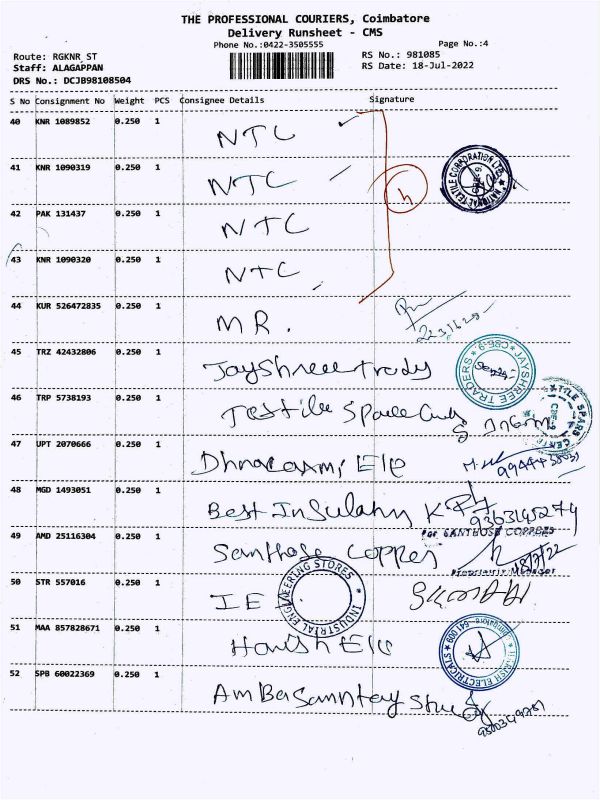 THE PROFESSIONAL COURIERS, Coimbatore
Delivery Runsheet - CMS
Phone No.:0422-3505555 Page No.:4
Route: RGKNR_ST RS No.: 981085
Staff: ALAGAPPAN RS Date: 18-Jul-2022
DRS No.: DCJB98108504
S No Consignment No Weight PCS Consignee Details Signature
40 KNR 1089852 0.250 1 NTC
41 KNR 1090319 0.250 1 NTC
NATIONAL TEXTILE CORPORATION LTD.
42 PAK 131437 0.250 1 NTC
43 KNR 1090320 0.250 1 NTC
44 KUR 526472835 0.250 1 MR.
45 TRZ 42432806 0.250 1 Jayshree
JAYSHREE TRADERS CBE-9
46 TRP 5738193 0.250 1 Textile
47 UPT 2070666 0.250 1 Ele
48 MGD 1493051 0.250 1 Best
49 AMD 25116304 0.250 1 Santhose Copper
For SANTHOSE COPPERS
18/7/22
50 STR 557016 0.250 1 IE
INDUSTRIAL ENGINEERING STORES
51 MAA 857828671 0.250 1 Harish Ele
HARISH ELECTRICALS
52 SPB 60022369 0.250 1